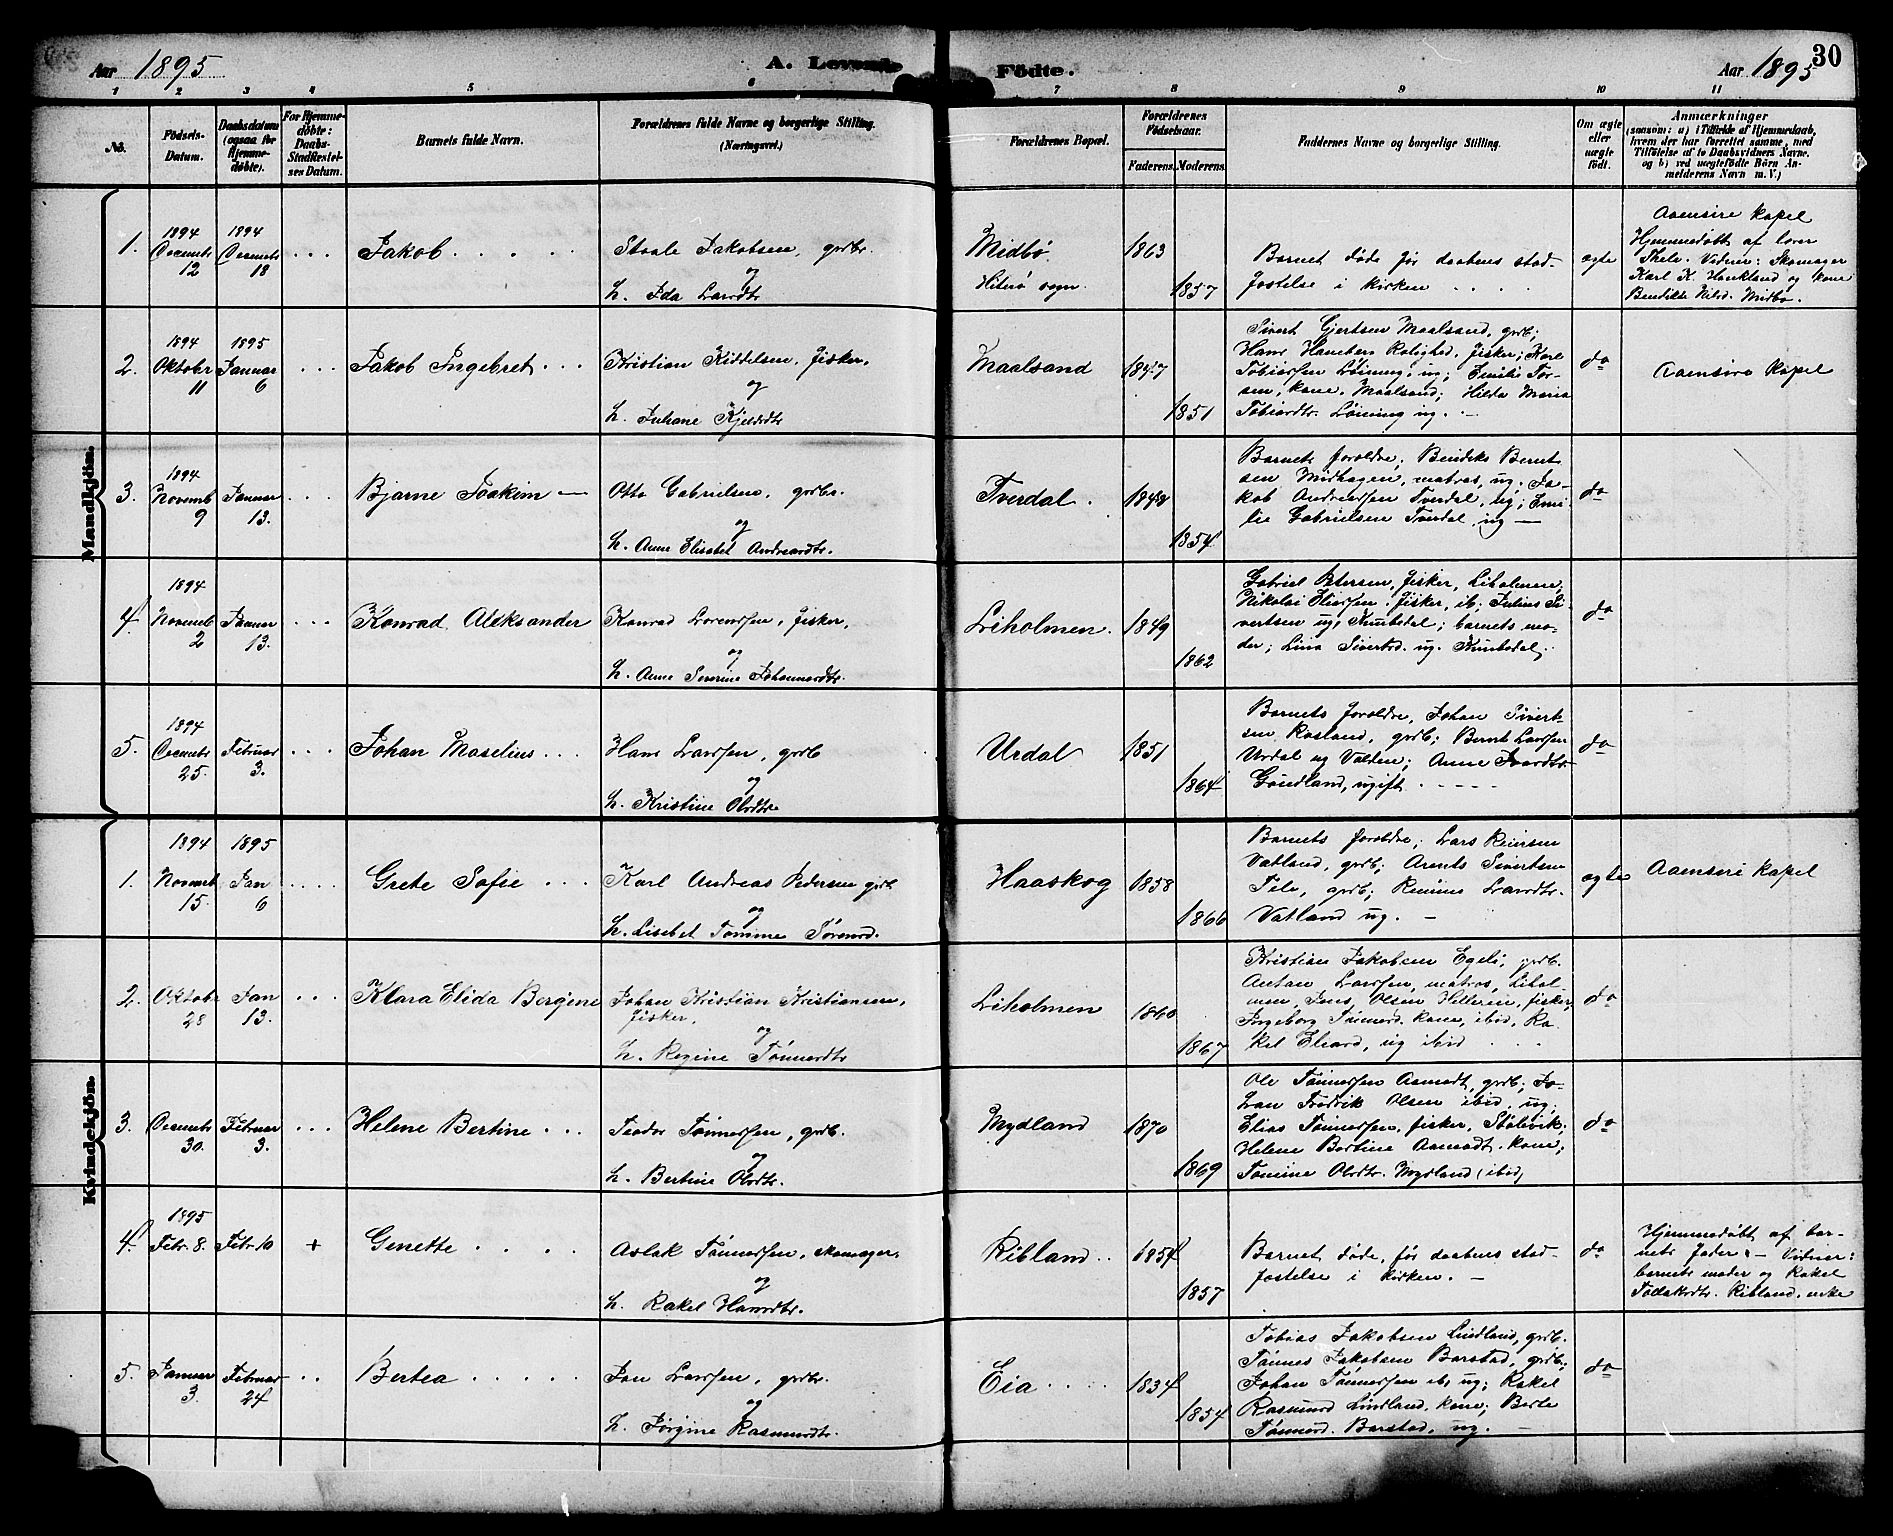 Aar 1895
A. Levende Födte.
Aar 1895
30
1 2 3 4 5 6 7 8 9 10 11
No.
Födsels-Datum.
Daabsdatum (ogsaa for Hjemme-döbte).
For Hjemme-döbte: Daabs-Stadfæstel-ses Datum.
Barnets fulde Navn.
Forældrenes fulde Navne og borgerlige Stilling. (Næringsvei.)
Forældrenes Bopæl.
Forældrenes Födselsaar.
Faderens. Moderens.
Faddernes Navne og borgerlige Stilling.
Om ægte eller uægte födt.
Anmærkninger
(saasom: a) i Tilfælde af Hjemmedaab,
hvem der har forrettet samme, med
Tilföielse af to Daabsvidners Navne,
og b) ved uægtefödte Börn An-
melderens Navn m. V.)
Mandkjön.
1. 1894 Decembr 12 1894 Decembr 18 Jakob
Staale Jakobsen, grdbr.
og
h. Ida Larsdtr
Midbø, Hiterø sogn. 1863 1857
Barnet døde før daabens stad-
fæstelse i kirken
ægte
Aamsire kapel
Hjemmedøbt af lærer
Thele. Vidner: Skomager
Karl K. Haukland og kone
Bendikte Midbø.
2. 1894 Oktober 11 1895 Januar 6 Jakob Ingebret
Kristian Kiddelsen, fisker,
og
h. Juliane Kjeldsdtr
Maalsand 1847 1851
Sivert Gjertsen Maalsand, grdb;
Rolighed, fisker; Karl
Tobiassen Løining, ug; Emilie Tor-
sen, kone, Maalsand; Hilda Maria
Tobiasdtr. Løining ug.
do
Aamsire kapel
3. 1894 Novemb 9 Januar 13. Bjarne Joakim
Otto Gabrielsen, grdbr.
og
h. Anne Elisabet Andreasdtr.
Tverdal. 1854
Barnets forældre; Bendiks Bernt
sen Midhagen, matros, ug. Ja-
kob Andreassen Tverdal, ug; Emi-
lie Gabrielsen Tverdal, ug
do
4. 1894 Novemb 2 Januar 13. Konrad Aleksander
Konrad Lorentsen, fisker,
og
h. Anne Severine Johannesdtr.
Liholmen. 1849 1862
Gabriel Petersen, fisker, Liholmen,
Nikolai Eliassen, fisker, ib; Julius Si-
vertsen ug, Kumbedal; barnets mo-
der; Lina Sivertsd. ug. Kumbedal;
do
5. 1894 Decembr 25. Februar 3. Johan Maselius
Hans Larssen, grdb
og
h. Kristine Olsdtr
Urdal 1851 1864
Barnets forældre, Johan Sivert-
sen Rosland, grdb; Bernt Larssen
Urdal ug Valden; Anne
ugift
do
Kvindekjön.
1. 1894 Novembr 15. 1895 Jan 6 Grete Sofie
Karl Andreas Pedersen grdb
og
h. Lisebet Tomine Sørensd.
Haaskog 1858 1866
Barnets forældre; Lars Reiersen
Vatland, grdb; Arents Sivertsen
grdb; Larsdtr.
Vatland ug.
ægte
Aamsire kapel
2. Oktobr 28 Jan 13. Klara Elida Bergine
Johan Kristian Kristiansen,
fisker,
og
h. Regine Tønnesdtr
Liholmen 1860 1867
Kristian Jakobsen Egeli, grdb.
Antan Larssen, matros, Lihol-
men, Jens Olsen Helleren, fisker,
Ingeborg Tønnesd. kone, ibid, Ra-
kel Eliasd, ug ibid
do
3. Decembr 30. Februar 3. Helene Bertine
Teodor Tønnessen, grdb.
og
h. Bertine Olsdtr.
Mydland 1870 1869
Ole Tønnessen Aamodt, grdb; Jo-
han Fredrik Olsen ibid ug;
Elias Tønnessen, fisker, Stølsvik;
Helene Bertine Aamodt. kone;
Tomine Olsdtr. Mydland (ibid)
do
4. 1895 Febr. 8. Febr. 10 + Genette
Aslak Tønnessen, skomager,
og
h. Rakel Hansdtr.
Ribland 1854 1857
Barnet døde, før daabens stad-
fæstelse i kirken.
do
Hjemmedøbt af bar-
nets fader. – Vidner:
barnets moder og Rakel
Ribland. enke
5. Januar 3. Februar 24 Bertea
Jon Larssen, grdbr.
og
h. Jørgine Rasmusdtr.
Eia 1834 1854
Tobias Jakobsen Lindland, grdb.
Tønnes Jakobsen Barstad, grdb;
Johan Tønnessen ib, ug; Rakel
Rasmusd Lindland, kone; Berte
Tønnesd. Barstad, ug.
do